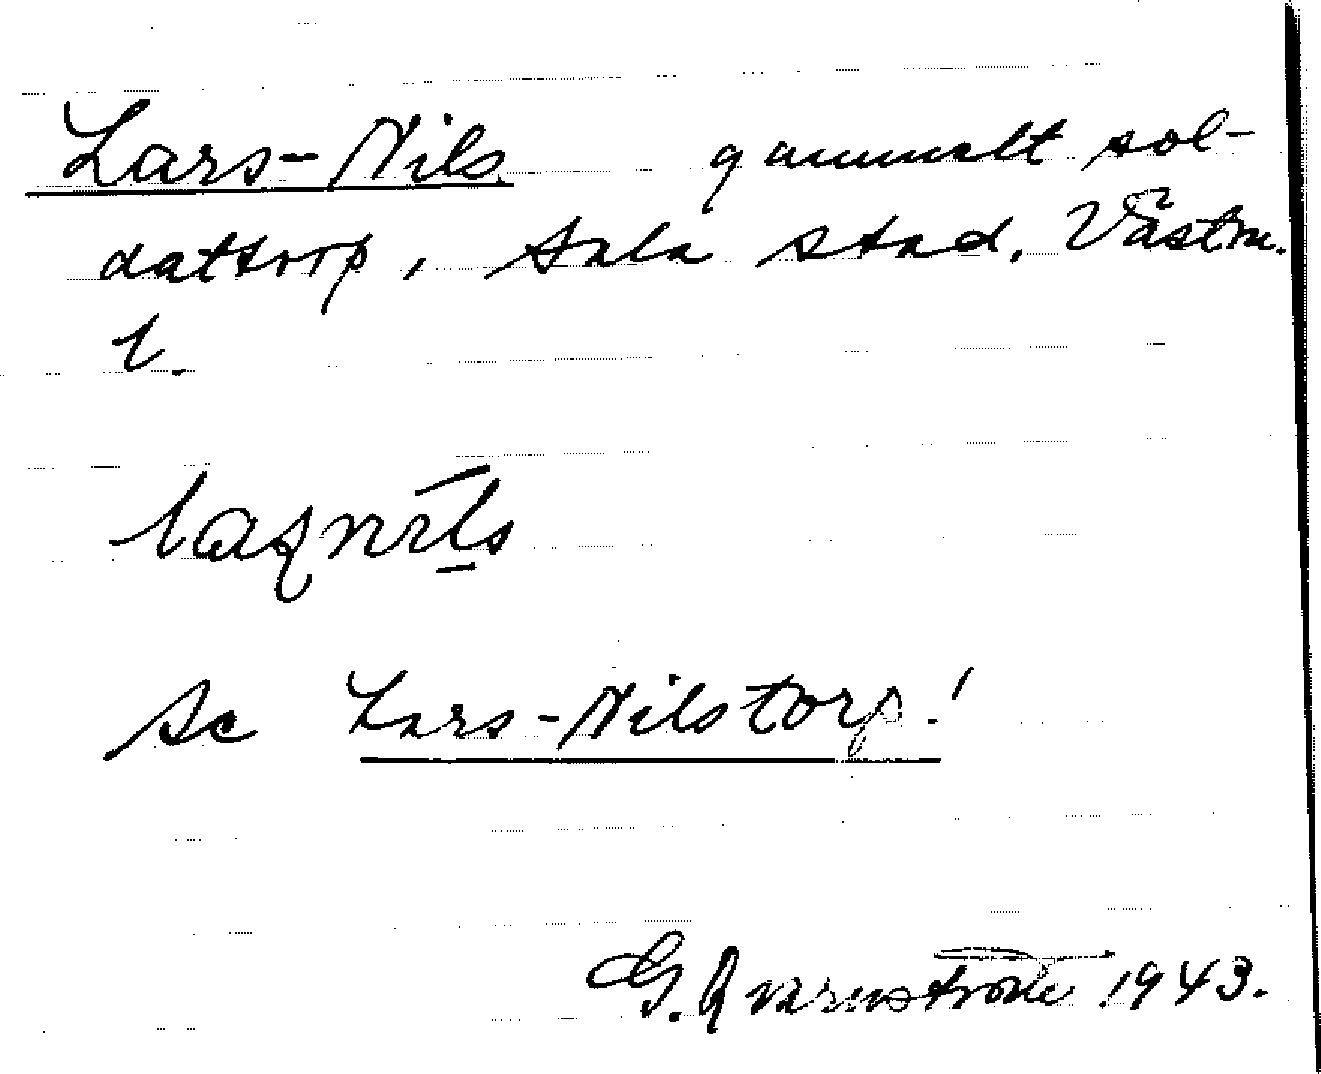 Lars-Nils gammelt sol-
dattorp, Sala stad, Västm.
l.
Se Lars-Nilstorp!
G. Qvarnström 1943.